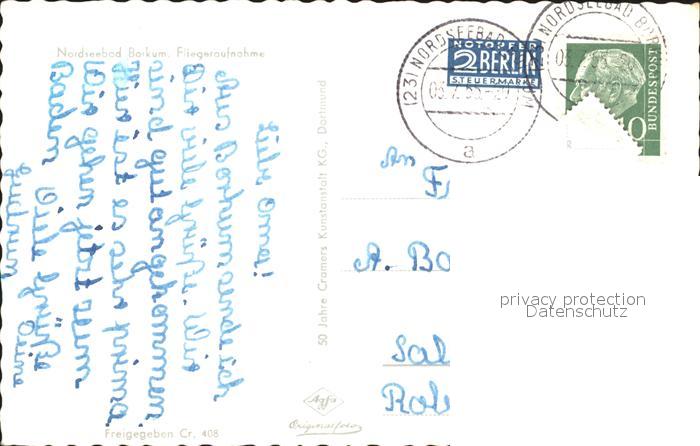 Nordseebad Borkum. Fliegeraufnahme
Liebe Oma!
Aus Borkum sende ich
Dir viele Grüße. Wir
sind gut angekommen.
Hier ist es sehr prima.
Wir gehen jetzt zum
Baden. Viele Grüße
Deine
50 Jahre Cramers Kunstanstalt KG., Dortmund
Agfa
Originalfoto
Freigegeben Cr. 408
(23) NORDSEEBAD BORKUM
a
NOTOPFER
2 BERLIN
STEUERMARKE
NORDSEEBAD BOR
BUNDESPOST
0
An
F
A. BO
Sal
Rob
privacy protection
Datenschutz